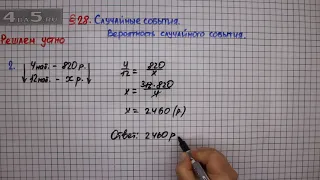 4 ДА 5.NET
§ 28. Случайные события.
Вероятность случайного события.
Решаем устно
2. 4 - 820 р.
12 - x р.
4/12 = 820/x
x = 12·820/4
x = 2460 (р)
Ответ: 2460 р